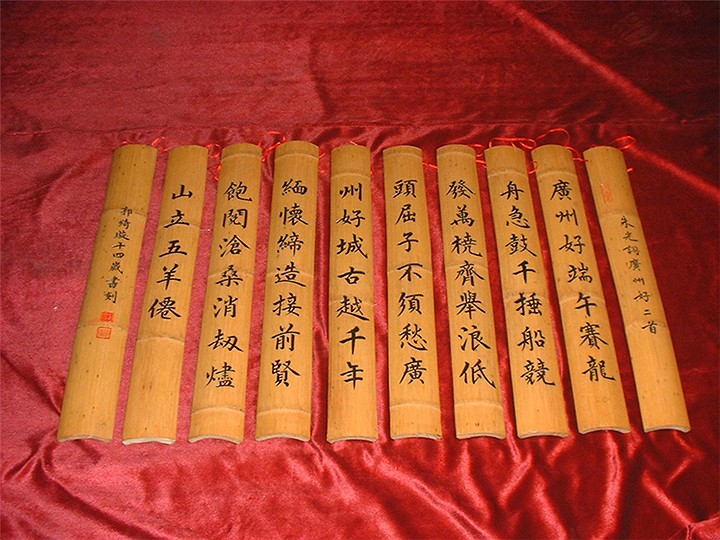 朱光詞廣州好二首
廣州好端午賽龍
舟急鼓千捶船競
發萬橈齊舉浪低
頭屈子不須愁廣
州好城古越千年
緬懷締造接前賢
飽閱滄桑消劫燼
山立五羊僊
郭綺璇十四歲書刻